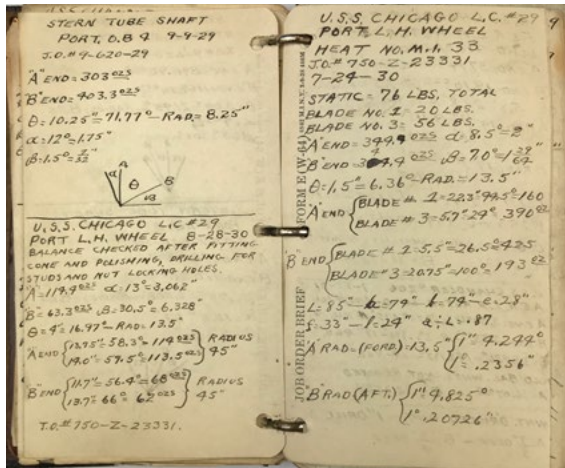 STERN TUBE SHAFT
PORT, O.B 4 9-9-29
J.O.# 9-620-29
"A" END = 303 OZS
"B" END = 403.3 OZS
θ = 10.25" = 71.77° - RAD = 8.25"
α = 12° = 1.75"
β = 1.5° = 7/32"
A
α θ B
β
U.S.S. CHICAGO L.C. #29
PORT L.H. WHEEL 8-28-30
BALANCE CHECKED AFTER FITTING
CONE AND POLISHING, DRILLING FOR
STUDS AND NUT LOCKING HOLES.
"A" = 119.9 OZS α = 13° = 3.062"
"B" = 63.3 OZS β = 30.5° = 6.328"
θ = 4" = 16.97° - RAD = 13.5"
"A" END { 13.75" = 58.3° = 114 OZS } RADIUS
14.0" = 59.5° = 113.5 OZS 45"
"B" END { 11.7" = 56.4° = 68 OZS } RADIUS
13.7" = 66° = 62 OZS 45"
J.O.# 750-Z-23331.
U.S.S. CHICAGO L.C. #29
PORT L.H. WHEEL
HEAT NO. M.I. 33
J.O.# 750-Z-23331
7-24-30
STATIC = 76 LBS. TOTAL
BLADE NO. 1 = 20 LBS.
BLADE NO. 3 = 56 LBS.
"A" END = 349.9 OZS α = 8.5° = 2"
"B" END = 4.9 OZS β = 7.0° = 1 29/64
θ = 1.5" = 6.36° - RAD = 13.5"
"A" END { BLADE # 1 = 22.3" 94.5° = 160
BLADE # 3 = 5.7" 29° 390 OZ
"B" END { BLADE # 1 = 5.5" = 26.5° = 425
BLADE # 3 = 20.75 = 100° = 193 OZ
L = 85" - a = 74" b = 74" - e = 28"
f = 33" - l = 24" a ÷ L = .87
"A" RAD = (FORD.) = 13.5" { 1" 4.244°
1° = .2356"
"B" RAD (AFT.) { 1" 4.825°
1° .20726"
FORM E (W-64)
JOB ORDER BRIEF